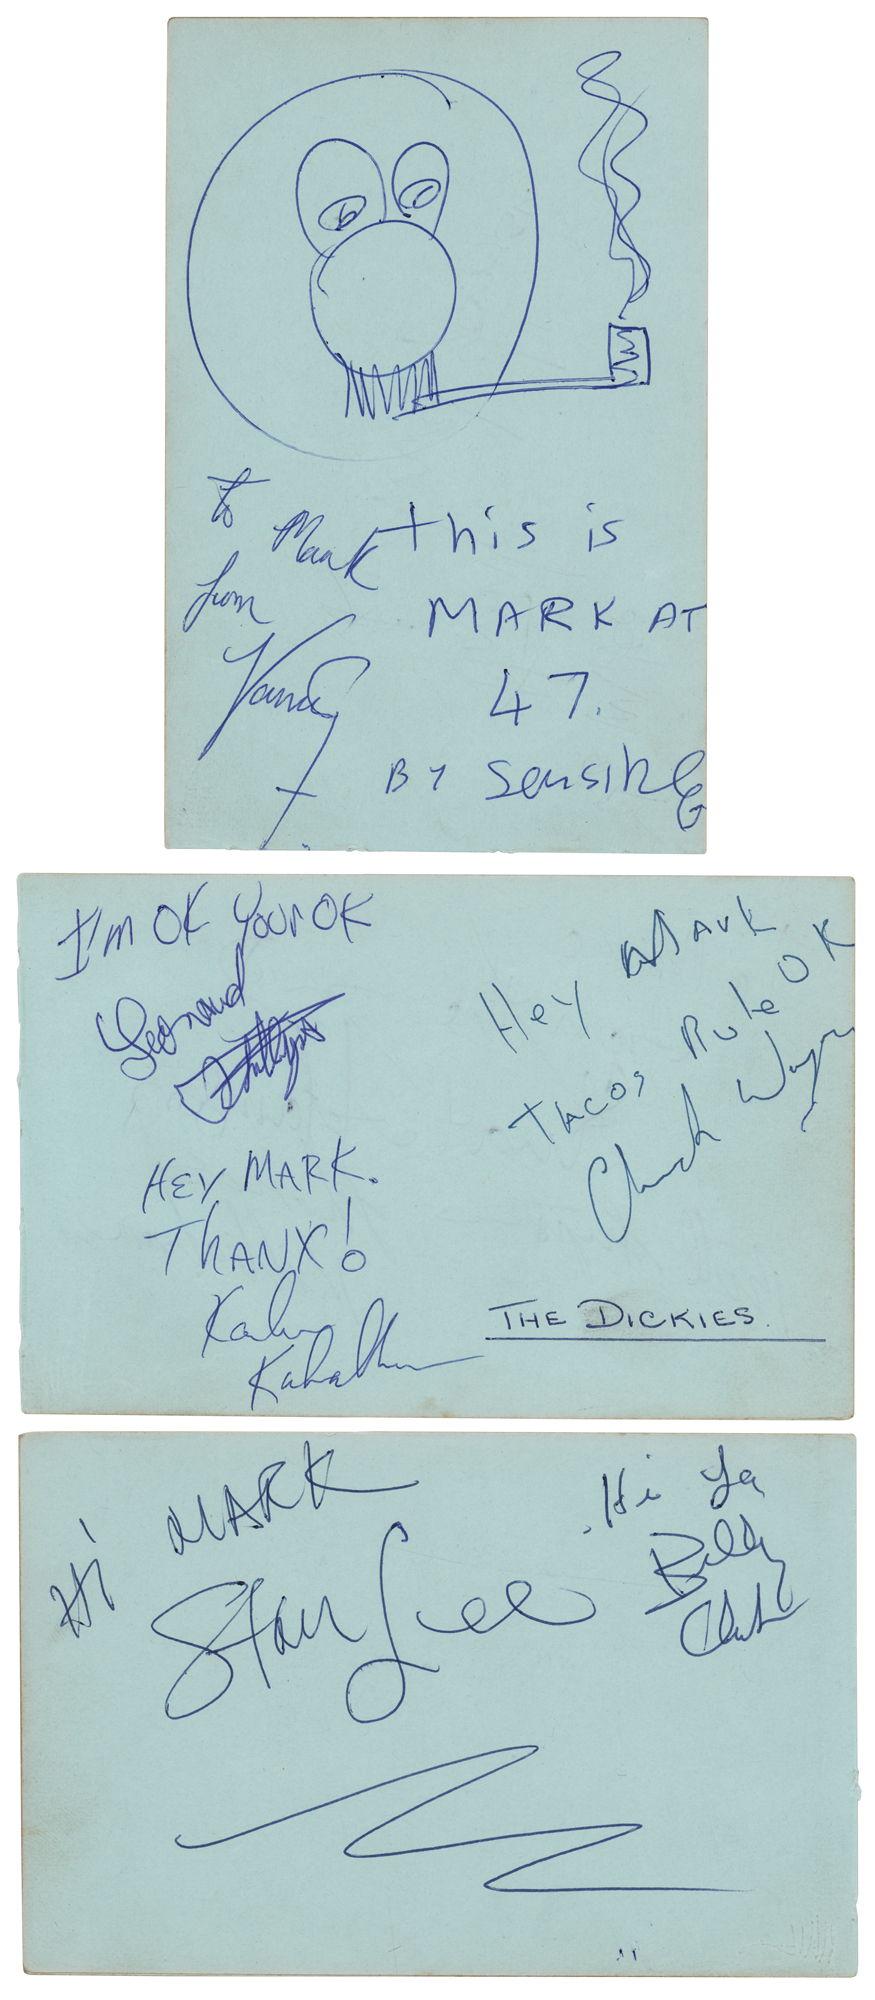 to Mark
from
Vanian
this is
MARK AT
47.
BY Sensible
I'm OK Your OK
Leonard
Phillips
Hey Mark
TACOS Rule OK
Chuck Wagon
HEY MARK.
THANX!
Karlos
Kaballero
THE DICKIES.
Hi MARK
Stan Lee
Hi Ya
Billy
Club